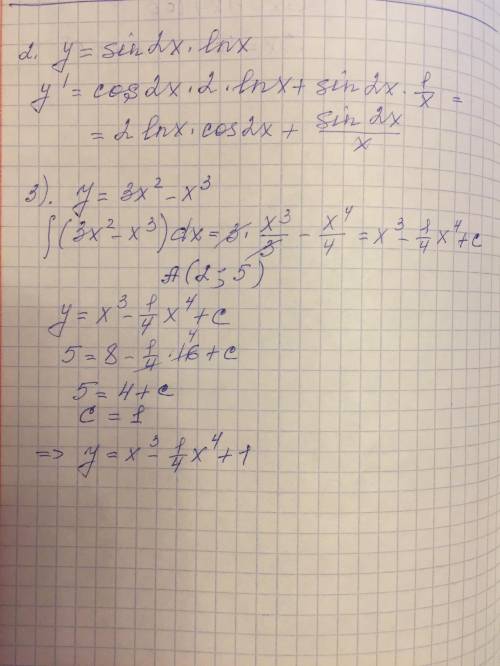 2. y = sin2x · lnx
y' = cos2x · 2 · lnx + sin2x · 1/x =
= 2 lnx · cos2x + sin 2x / x
3). y = 3x² - x³
∫(3x² - x³) dx = 3 · x³/3 - x⁴/4 = x³ - 1/4 x⁴ + c
A(2; 5)
y = x³ - 1/4 x⁴ + c
5 = 8 - 1/4 · 16 4 + c
5 = 4 + c
c = 1
=> y = x³ - 1/4 x⁴ + 1